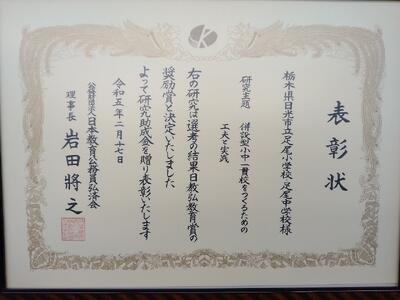 表彰状
栃木県日光市立足尾小学校・足尾中学校様
研究主題 併設型小中一貫校をつくるための
工夫と実践
右の研究は選考の結果日教弘教育賞の
奨励賞と決定いたしました
よって研究助成金を贈り表彰いたします
令和五年二月十七日
公益財団法人日本教育公務員弘済会
理事長 岩田將之